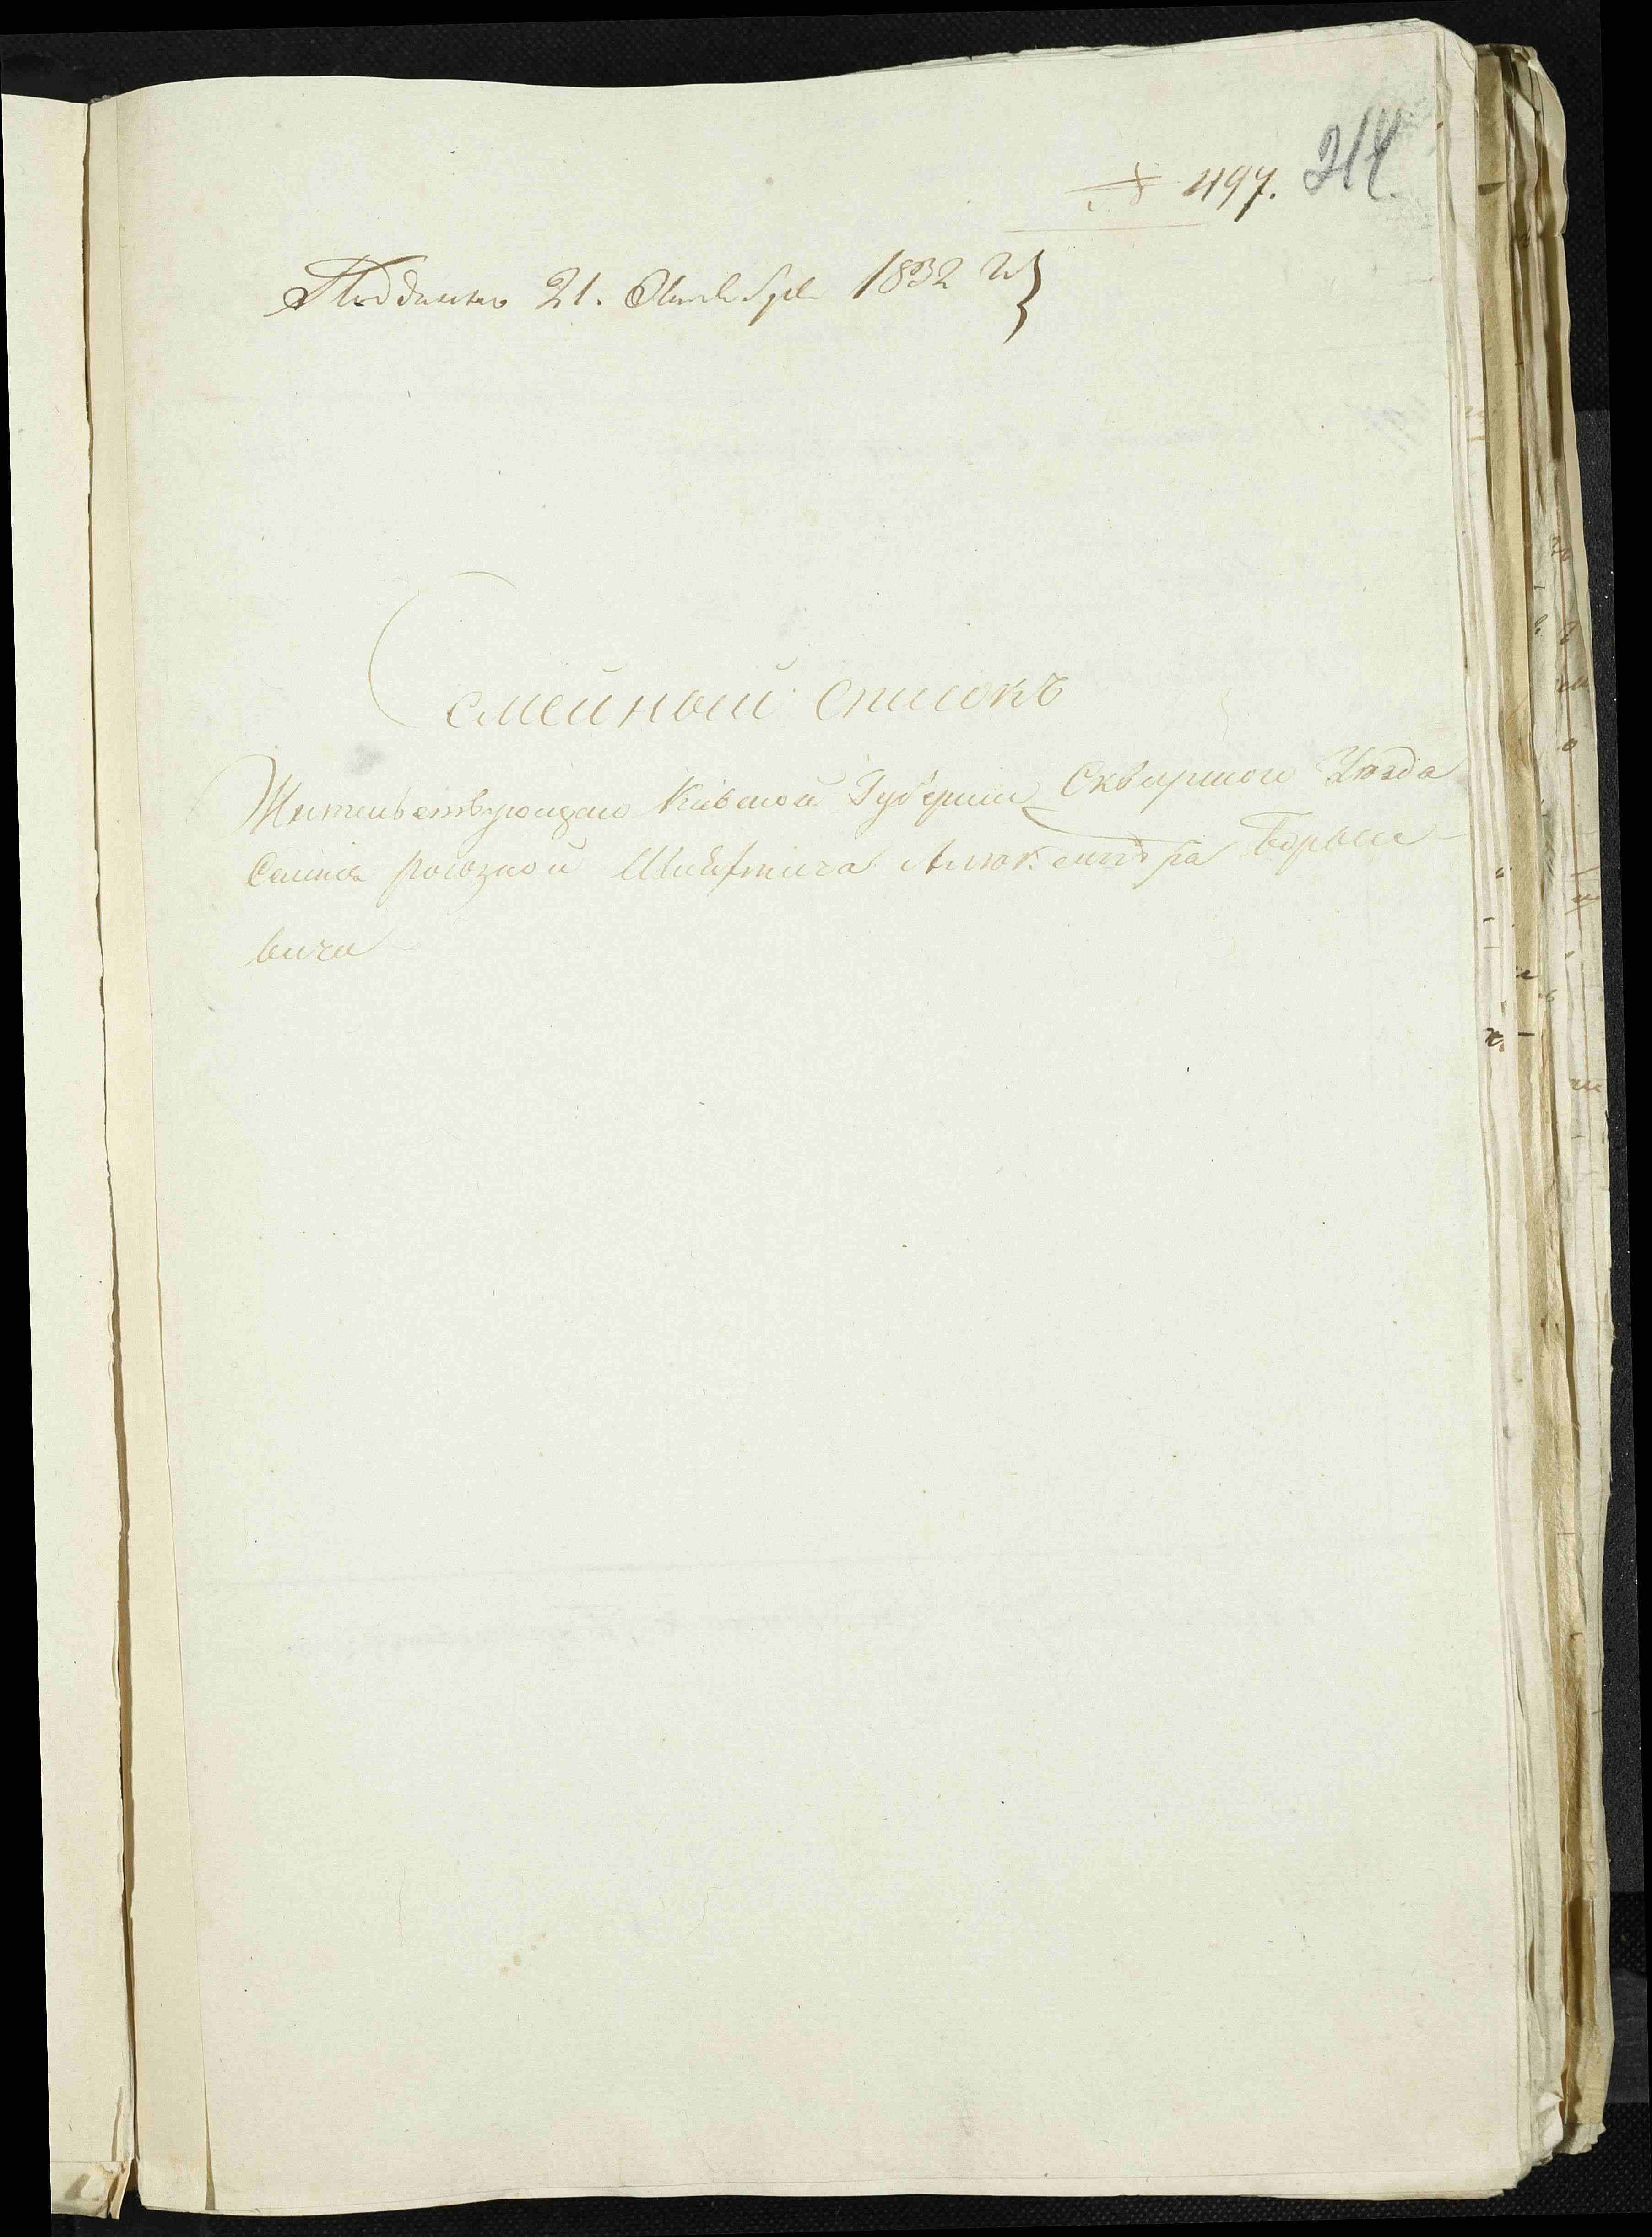 № 497. 214.
Подданно 21. Октября 1832 г.
Семейный списокъ
Жительствующаго Кіевской Губерніи Сквирского Уезда
Шляхтича Алюксандра Борысе-
вича